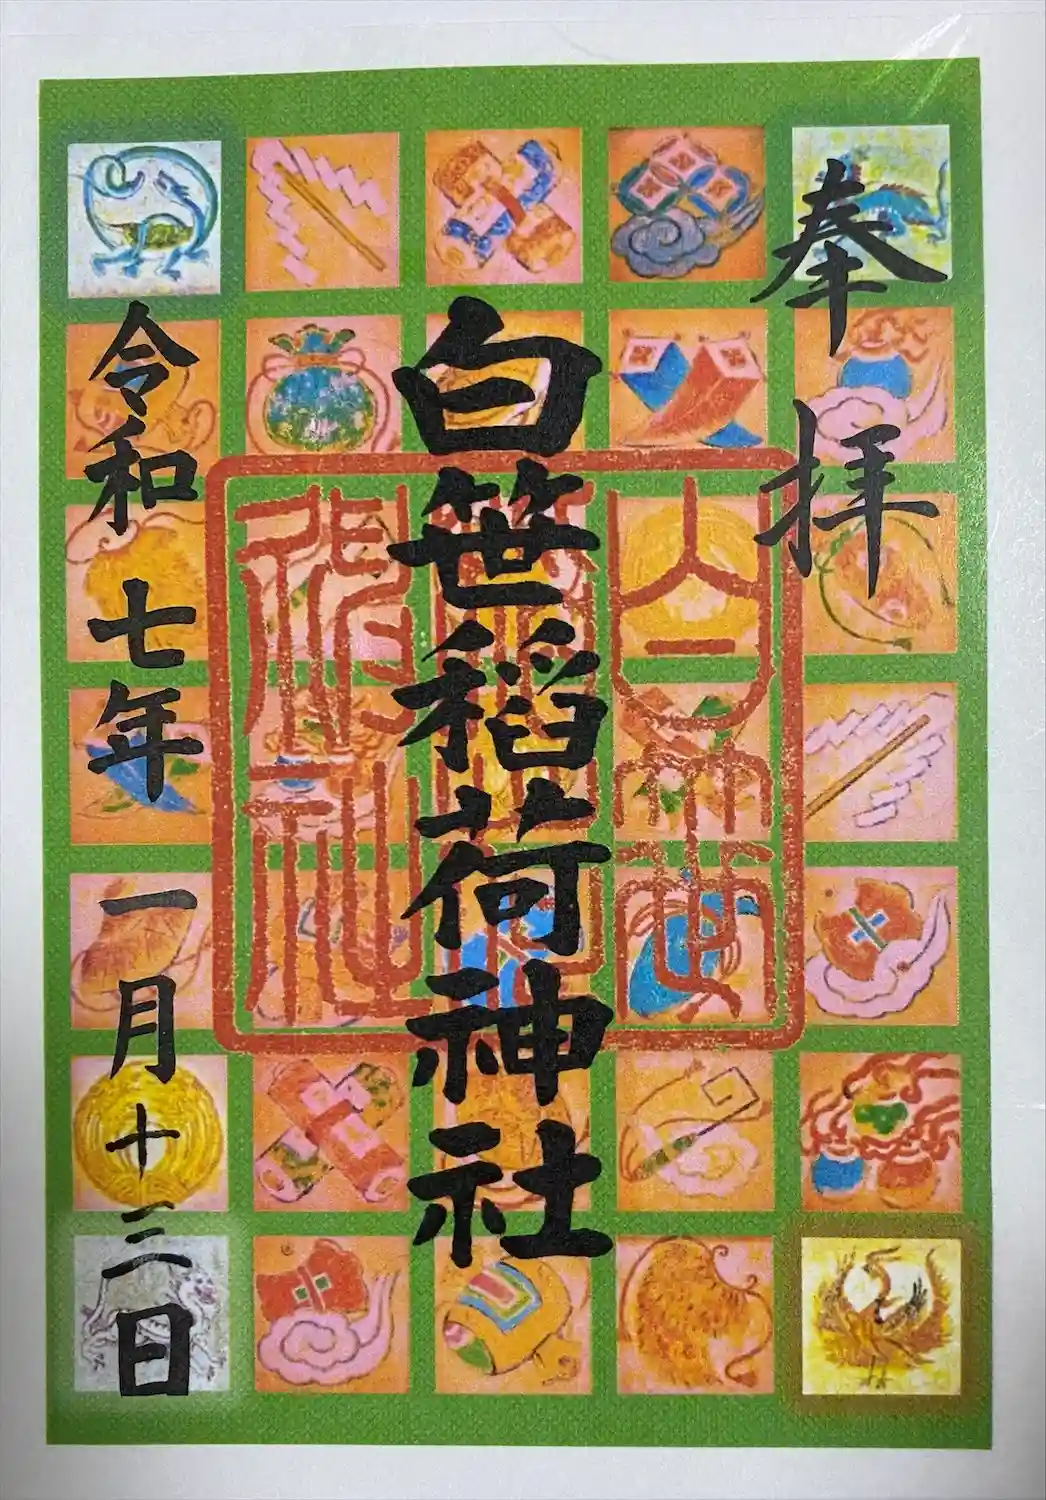 奉拝
白笹稲荷神社
令和七年一月十三日